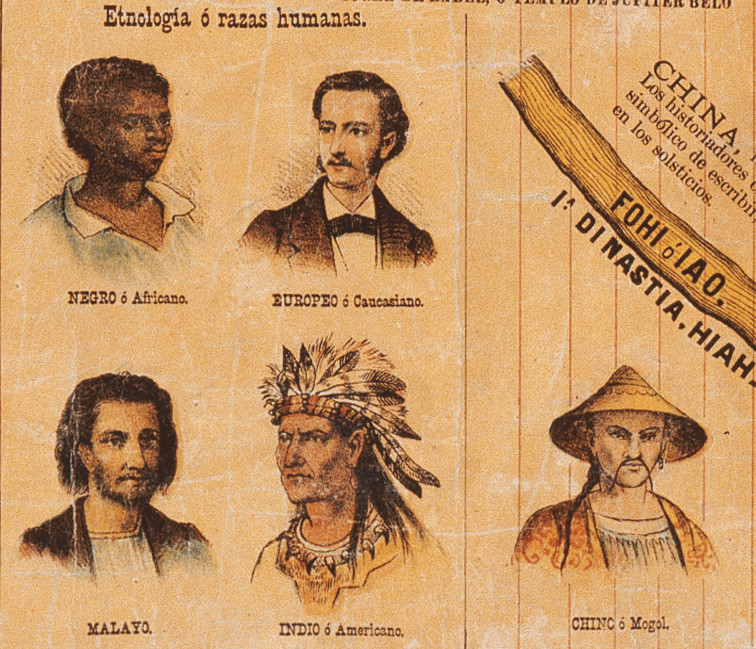 DE BABEL, Ó TEMPLO DE JÚPITER BELO
Etnología ó razas humanas.
NEGRO ó Africano.
EUROPEO ó Caucasiano.
MALAYO.
INDIO ó Americano.
CHINO ó Mogol.
CHINA,
Los historiadores
simbólico de escribir
en los solsticios.
FOHI ó IAO.
1ª DINASTIA, HIAH